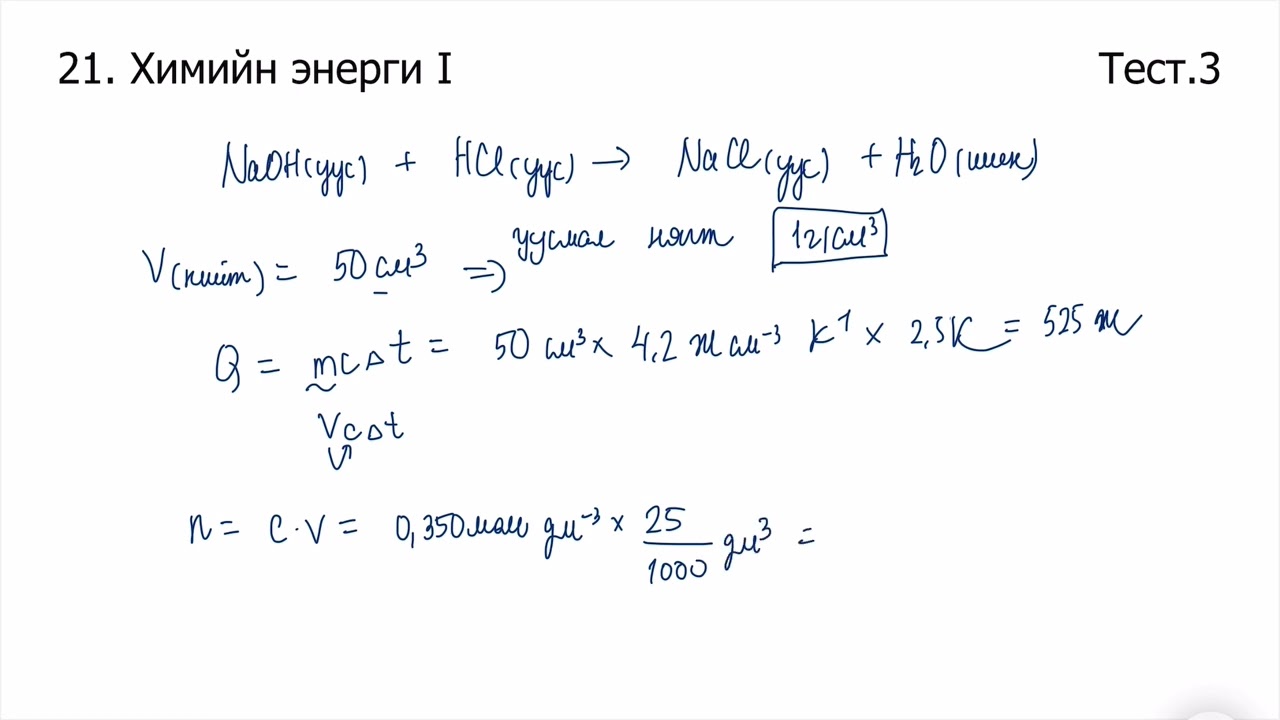 21. Химийн энерги I
Тест.3
NaOH(уус) + HCl(уус) → NaCl(уус) + H₂O(шин)
V(нийт) = 50 см³ ⇒ уусмал нягт 1г/см³
Q = mcΔt = 50 см³ × 4,2 Ж см⁻³ K⁻¹ × 2,5K = 525 Ж
VcΔt
V
n = c·V = 0,350 моль дм⁻³ × 25/1000 дм³ =